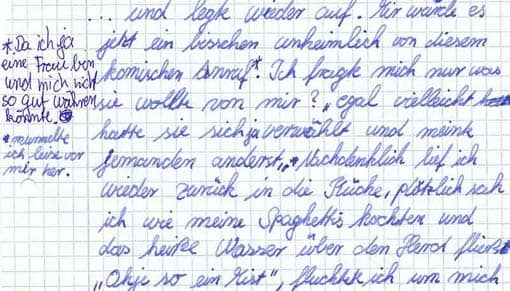 ... und legte wieder auf. Mir wurde es
jetzt ein bisschen unheimlich von diesem
komischen Anruf*. Ich fragte mich nur was
sie wollte von mir? „egal vielleicht
hatte sie sich ja verwählt und meinte
jemanden anderst"* Nachdenklich lief ich
wieder zurück in die Küche, plötzlich sah
ich wie meine Spaghettis kochten und
das heiße Wasser über den Herd fließt
„Ohje so ein Mist", fluchte ich um mich
*Da ich ja
eine Frau bin
und mich nicht
so gut wehren
könnte.
*murmelte
ich leise vor
mir her.